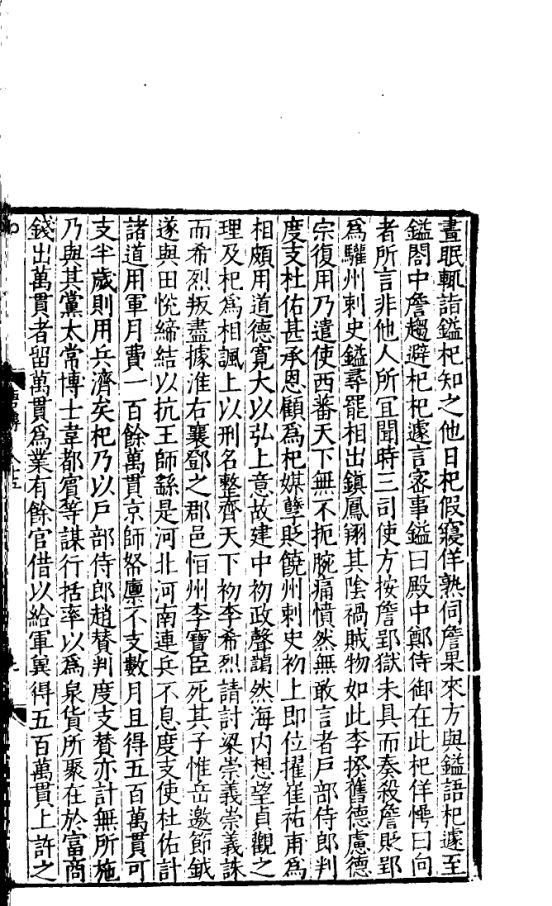 晝眠輒詣鎰杞知之他日杞假寢佯熟伺詹果來方與鎰語杞遽至
鎰閤中詹趨避杞杞遽言密事鎰曰殿中鄭侍御在此杞佯愕曰向
者所言非他人所宜聞時三司使方按詹郢獄未具而奏殺詹貶郢
爲驩州刺史鎰尋罷相出鎮鳳翔其陰禍賊物如此李揆舊德慮德
宗復用乃遣使西蕃天下無不扼腕痛憤然無敢言者戶部侍郎判
度支杜佑甚承恩顧爲杞媒孽貶饒州刺史初上即位擢崔祐甫爲
相頗用道德寬大以弘上意故建中初政聲藹然海內想望貞觀之
理及杞爲相諷上以刑名整齊天下初李希烈請討梁崇義崇義誅
而希烈叛盡據淮右襄鄧之郡邑恒州李寶臣死其子惟岳邀節鉞
遂與田悅締結以抗王師繇是河北河南連兵不息度支使杜佑計
諸道用軍月費一百餘萬貫京師帑廩不支數月且得五百萬貫可
支半歲則用兵濟矣杞乃以戶部侍郎趙贊判度支贊亦計無所施
乃與其黨太常博士韋都賓等謀行括率以爲泉貨所聚在於富商
錢出萬貫者留萬貫爲業有餘官借以給軍冀得五百萬貫上許之